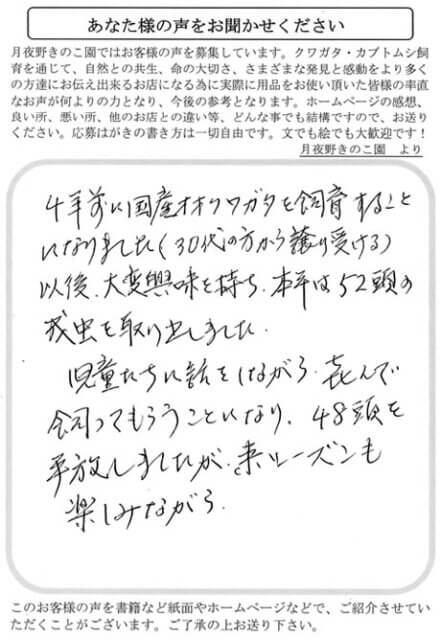 あなた様の声をお聞かせください
月夜野きのこ園ではお客様の声を募集しています。クワガタ・カブトムシ飼
育を通じて、自然との共生、命の大切さ、さまざまな発見と感動をより多く
の方達にお伝え出来るお店になる為に実際に用品をお使い頂いた皆様の率直
なお声が何よりの力となり、今後の参考となります。ホームページの感想、
良い所、悪い所、他のお店との違い等、どんな事でも結構ですので、お送り
ください。応募はがきの書き方は一切自由です。文でも絵でも大歓迎です！
月夜野きのこ園 より
4年前に国産オオクワガタを飼育すること
になりました(30代の方から譲り受ける)
以後、大変興味を持ち、本年は52頭の
成虫を取り出しました。
児童たちに話をしながら、喜んで
飼ってもらうことになり、48頭を
手放しましたが、来シーズンも
楽しみながら。
このお客様の声を書籍など紙面やホームページなどで、ご紹介させてい
ただくことがございます。ご了承の上お送り下さい。